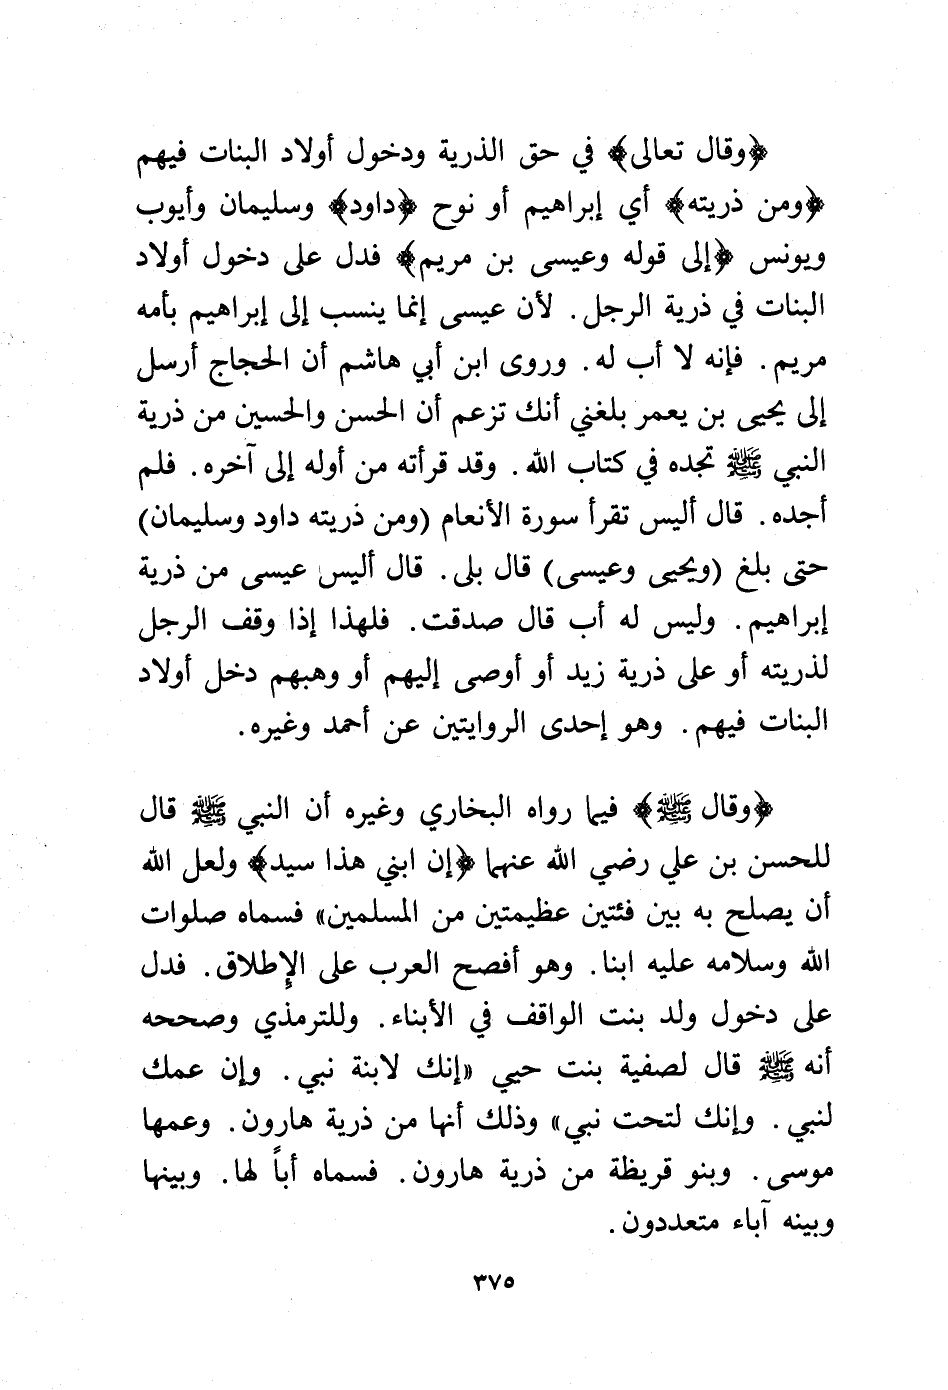 ﴿وقال تعالى﴾ في حق الذرية ودخول أولاد البنات فيهم
﴿ومن ذريته﴾ أي إبراهيم أو نوح ﴿داود﴾ وسليمان وأيوب
ويونس ﴿إلى قوله وعيسى بن مريم﴾ فدل على دخول أولاد
البنات في ذرية الرجل. لأن عيسى إنما ينسب إلى إبراهيم بأمه
مريم. فإنه لا أب له. وروى ابن أبي هاشم أن الحجاج أرسل
إلى يحيى بن يعمر بلغني أنك تزعم أن الحسن والحسين من ذرية
النبي ﷺ تجده في كتاب الله. وقد قرأته من أوله إلى آخره. فلم
أجده. قال أليس تقرأ سورة الأنعام (ومن ذريته داود وسليمان)
حتى بلغ (ويحيى وعيسى) قال بلى. قال أليس عيسى من ذرية
إبراهيم. وليس له أب قال صدقت. فلهذا إذا وقف الرجل
لذريته أو على ذرية زيد أو أوصى إليهم أو وهبهم دخل أولاد
البنات فيهم. وهو إحدى الروايتين عن أحمد وغيره.
﴿وقال ﷺ﴾ فيما رواه البخاري وغيره أن النبي ﷺ قال
للحسن بن علي رضي الله عنهما ﴿إن ابني هذا سيد﴾ ولعل الله
أن يصلح به بين فئتين عظيمتين من المسلمين» فسماه صلوات
الله وسلامه عليه ابنا. وهو أفصح العرب على الإطلاق. فدل
على دخول ولد بنت الواقف في الأبناء. وللترمذي وصححه
أنه ﷺ قال لصفية بنت حيي «إنك لابنة نبي. وإن عمك
لنبي. وإنك لتحت نبي» وذلك أنها من ذرية هارون. وعمها
موسى. وبنو قريظة من ذرية هارون. فسماه أباً لها. وبينها
وبينه آباء متعددون.
٣٧٥